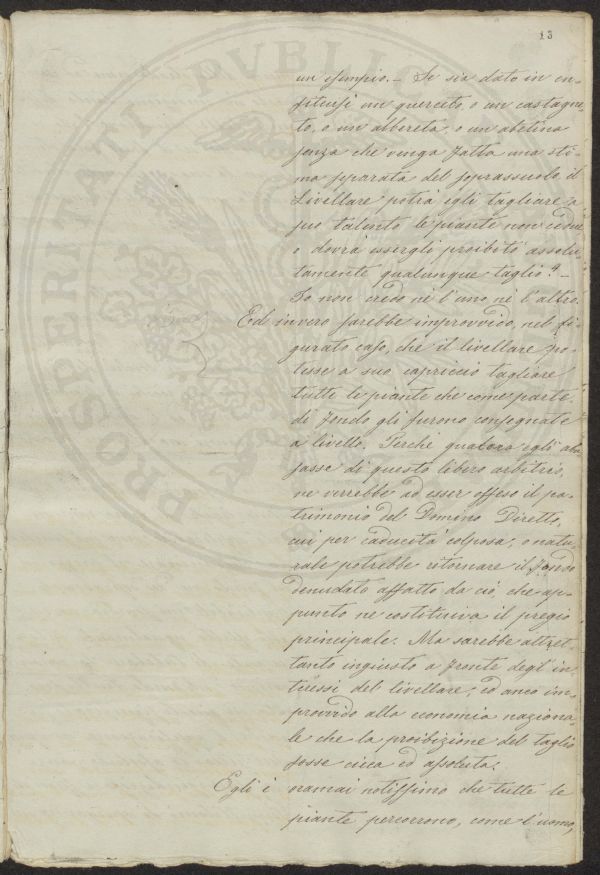 13
un esempio. – Se sia dato in en-
fiteusi un querceto, o un castagne-
to, o un'albereta, o un'abetina
senza che venga fatta una sti-
ma separata del soprassuolo il
Livellare potrà egli tagliare a
suo talento le piante non cedue
o dovrà essergli proibito assolu-
tamente qualunque taglio? –
Io non credo nè l'uno nè l'altro.
Ed invero sarebbe improvvido, nel fi-
gurato caso, che il livellare po-
tesse a suo capriccio tagliare
tutte le piante che come parte
di fondo gli furono consegnate
a livello. Perchè qualora egli abu-
sasse di questo libero arbitrio,
ne verrebbe ad esser offeso il pa-
trimonio del Domino Diretto,
cui per caducità colposa, o natu-
rale potrebbe ritornare il fondo
denudato affatto da ciò, che ap-
punto ne costituiva il pregio
principale. Ma sarebbe altret-
tanto ingiusto a fronte degl'in-
teressi del livellare, ed anco im-
provvido alla economia naziona-
le che la proibizione del taglio
fosse cieca ed assoluta.
Egli è omai notissimo che tutte le
piante percorrono, come l'uomo,
PROSPERITATI PVBLICAE